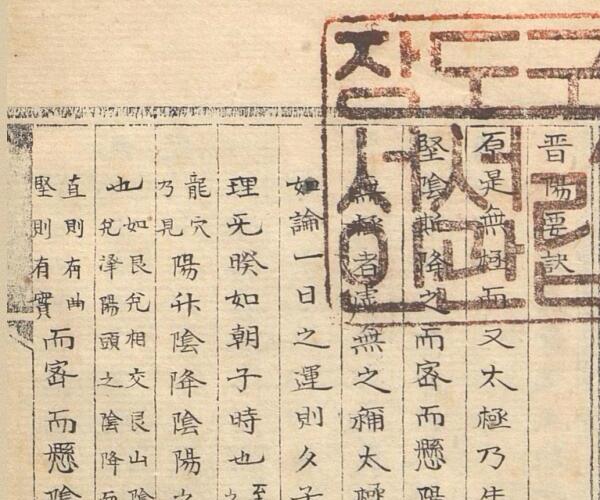 晋陽要訣
原是無極而又太極乃生
堅陰斯降之而密而懸陽
無極者虛無之稱太極
如論一日之運則夕子
理旡睽如朝子時也
龍穴
乃見
陽升陰降陰陽之
也
如艮兌相交艮山陰
兌澤陽頭之陰降而
直則有曲
堅則有實
而密而懸陰
잠도구
서